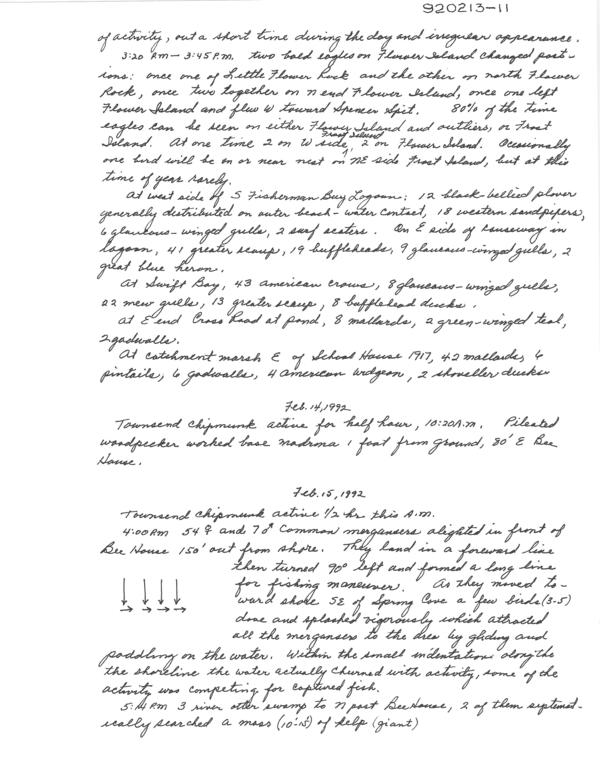 920213-11
of activity, out a short time during the day and irregular appearance.
3:20 PM – 3:45 P.M. two bald eagles on Flower Island changed posit-
ions: once one of Little Flower Rock and the other on north Flower
Rock, once two together on n end Flower Island, once one left
Flower Island and flew W toward Spencer Spit. 80% of the time
eagles can be seen on either Flower Island and outliers, or Frost
Island. At one time 2 on W side Frost Island, 2 on Flower Island. Occasionally
one bird will be on or near nest on NE side Frost Island, but at this
time of year rarely.
At west side of S Fisherman Bay Lagoon: 12 black-bellied plover
generally distributed on outer beach-water contact, 18 western sandpipers,
6 glaucous-winged gulls, 2 surf scoters. On E side of causeway in
lagoon, 41 greater scaup, 19 buffleheads, 9 glaucous-winged gulls, 2
great blue heron.
At Swift Bay, 43 American crows, 8 glaucous-winged gulls,
22 mew gulls, 13 greater scaup, 8 bufflehead ducks.
At E end Cross Road at pond, 8 mallards, 2 green-winged teal,
2 gadwalls.
At catchment marsh E of School House 1917, 42 mallards, 6
pintails, 6 gadwalls, 4 American widgeon, 2 shoveller ducks
Feb. 14, 1992
Townsend chipmunk active for half hour, 10:20 A.m. Pileated
woodpecker worked base madrona 1 foot from ground, 80' E Bee
House.
Feb. 15, 1992
Townsend chipmunk active 1/2 hr this A.m.
4:00 PM 54 ♀ and 7 ♂ Common mergansers alighted in front of
Bee House 150' out from shore. They land in a foreward line
then turned 90° left and formed a long line
for fishing maneuver. As they moved to-
ward shore SE of Spring Cove a few birds (3-5)
dove and splashed vigorously which attracted
all the mergansers to the area by gliding and
paddling on the water. Within the small indentations along the
the shoreline the water actually churned with activity, some of the
activity was competing for captured fish.
5:14 PM 3 river otter swamp to N past Bee House, 2 of them systemat-
ically searched a mass (10'-15') of kelp (giant)